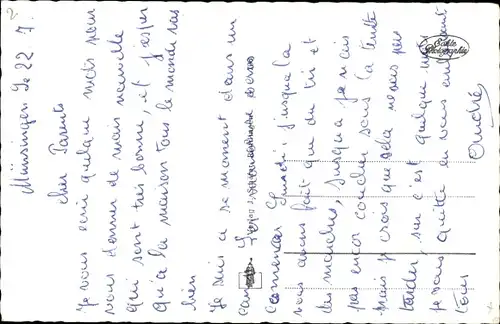 Münsingen Le 22 7.
cher Parents
Je vous ecris quelque mots pour
vous donner de mais nouvelle
qui sont très bonne, et j'esper
qu'a la maison tous le monde vas
bien
Je suis a se moment dans un
camp
commencer Lundi, jusque la
nous avons fait que du tir et
des marches, jusqua je n'ais
pas encor coucher sous la tente
mais je crois que sela ne vas pas
tarder, sur c'est quelque mots
je vous quitte en vous embrassant
tous
André
Echte Photographie
2